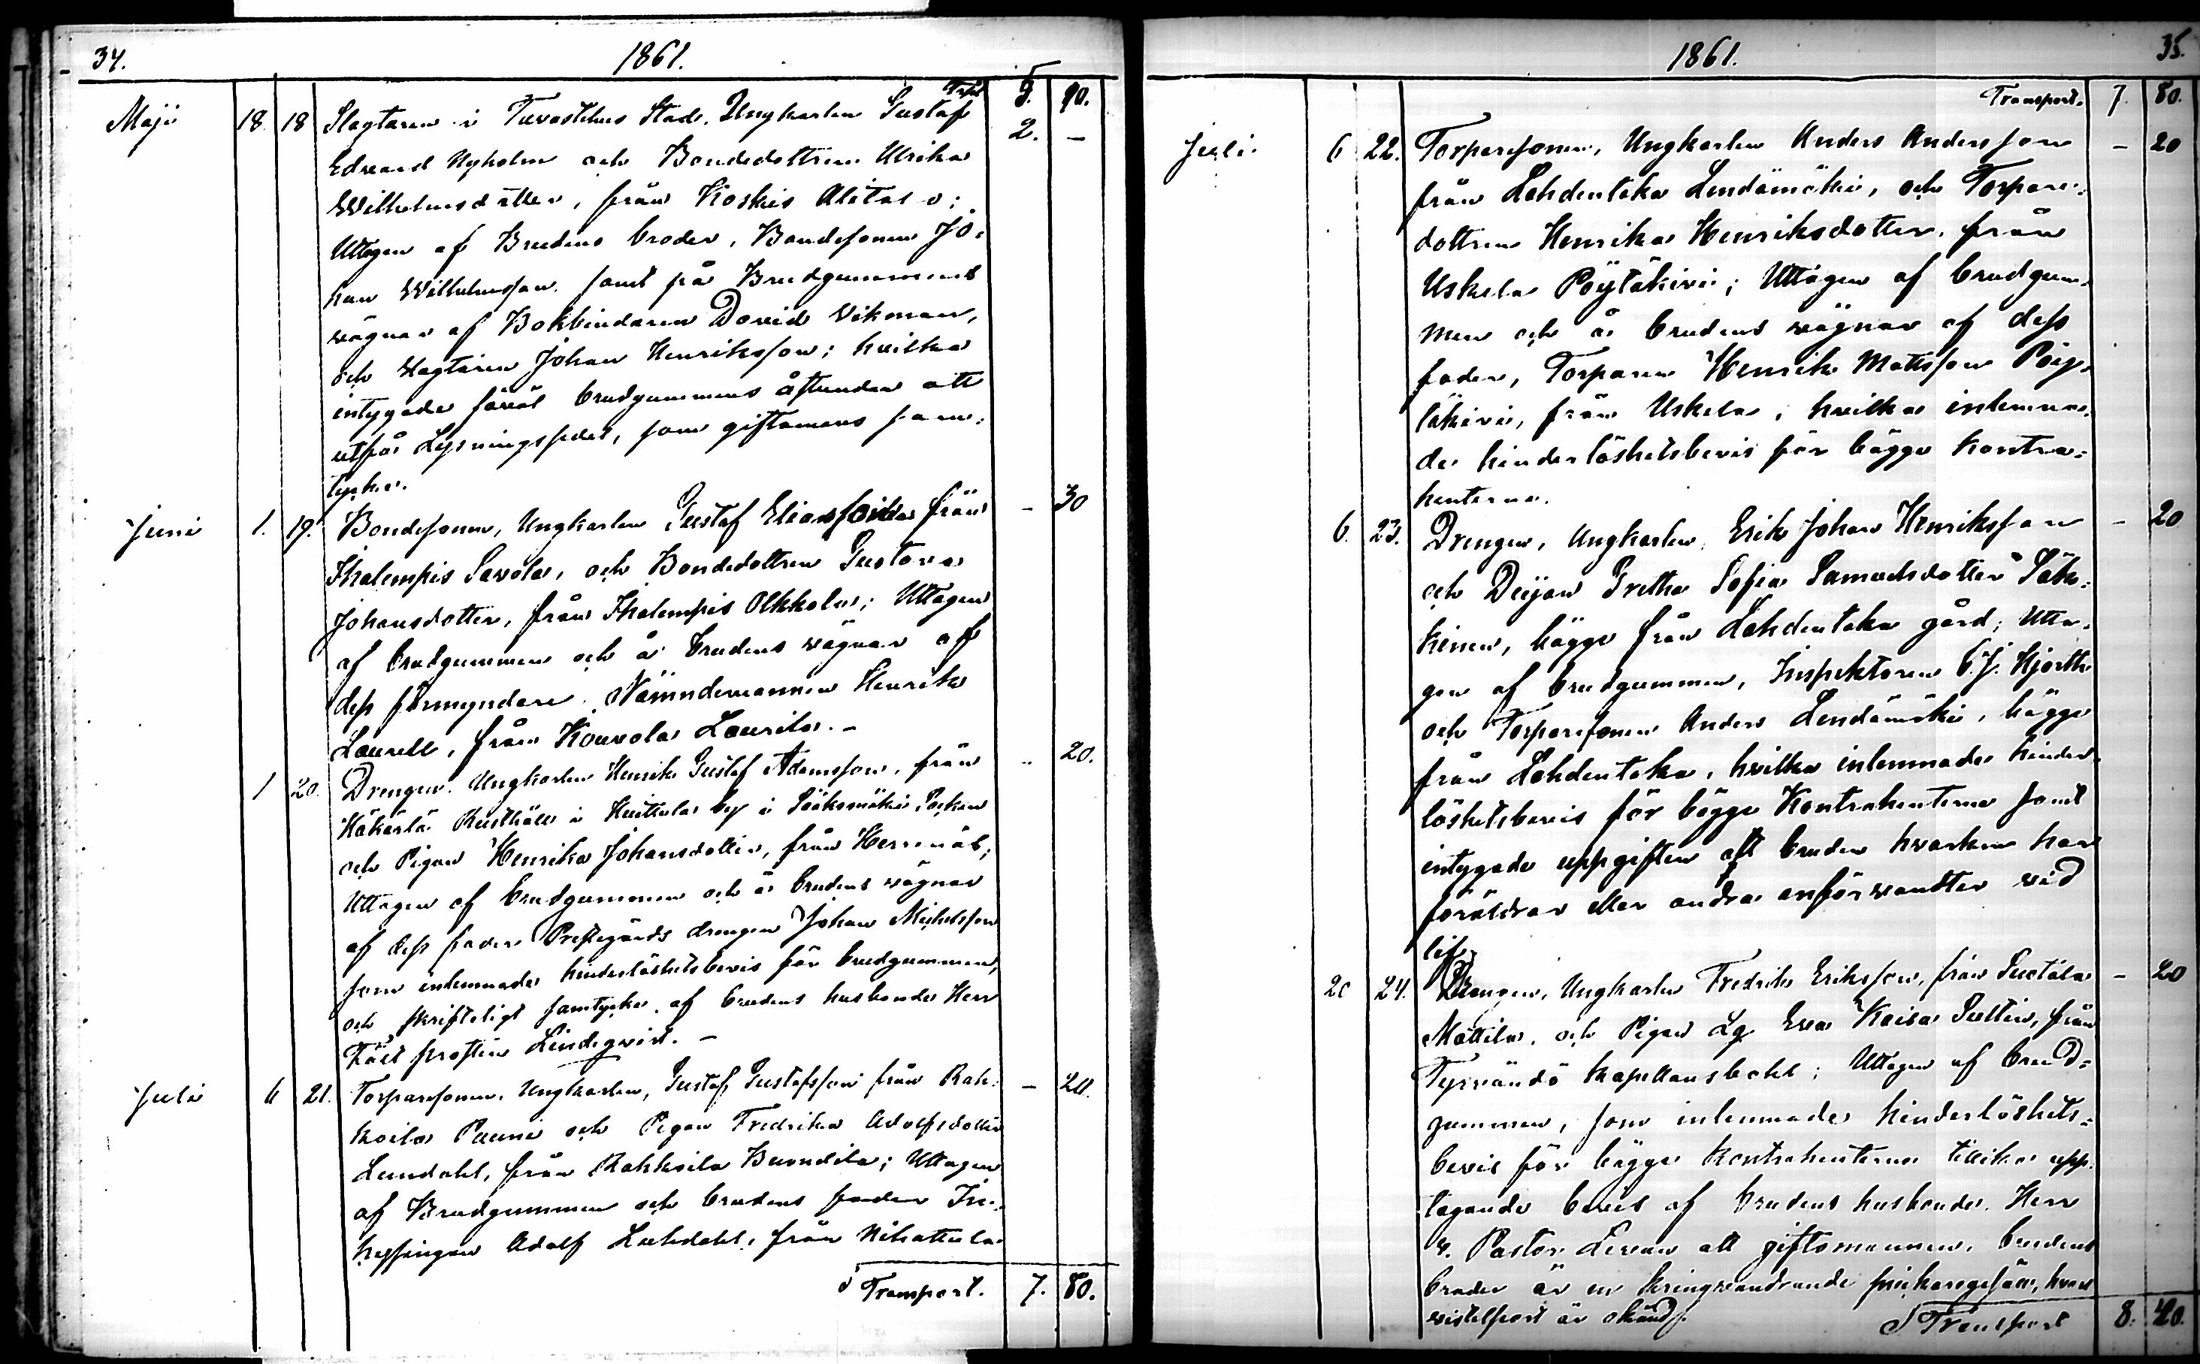 34.
1861.
Trspt 5. 90.
Maji 18. 18 Slagtaren i Tavastehus Stad, Ungkarlen Gustaf 2. –
Edvard Nyholm och Bondedottren Ulrika
Wilhelmsdotter, från Koskis Alitalo;
Uttagen af Brudens broder, Bondesonen Jo-
han Wilhelmsson samt på Brudgummens
vägnar af Bokbindaren David Vikman,
och Slagtaren Johan Henriksson; hvilka
intygade föräl brudgummens åstundan att
utfå Lysningssedel, som giftomans sam-
tycke.
Juni 1. 19. Bondesonen, Ungkarlen Gustaf Eliasson från – 30
Ihalempis Savola, och Bondedottren Gustava
Johansdotter, från Ihalempis Olkkola; Uttagen
af brudgummen och å brudens vägnar af
dess förmyndare Nämndemannen Henrik
Laurell, från Kouvola Laurila. –
1 20. Drengen Ungkarlen Henrik Gustaf Adamsson, från – 20.
Kåkärlä Rusthåll i Huittula by i Sääksmäki Socken
och Pigan Henrika Johansdotter, från Herrnäs;
Uttagen af brudgummen och å brudens vägnar
af dess fader Prestegårds drengen Johan Michelsson
som inlemnade hinderlöshetsbevis för brudgummen,
och skrifteligt samtycke af brudens husbonde Herr
Lindeqvist. –
Juli 6 21. Torparesonen, Ungkarlen, Gustaf Gustafsson från Rak- – 20.
koila Pauni och Pigan Fredrika Adolfsdotter
Lundahl, från Rakkoila Buondila; Uttagen
af Brudgummen och brudens fader In-
hyssingen Adolf Lundahl, från Nihattula
Transport. 7. 80.
1861.
35.
Transport. 7. 80.
Juli 6 22. Torparesonen, Ungkarlen Anders Andersson – 20
från Lahdentaka Lendämäki, och Torpare-
dottren Henrika Henriksdotter, från
Uskela Pöytäkivi; Uttagen af brudgum-
men och å brudens vägnar af dess
fader, Torparen Henrik Mattsson Pöy-
täkivi, från Uskela, hvilka inlemna-
de hinderlöshetsbevis för bägge kontra-
henterna.
6. 23. Drengen, Ungkarlen Erik Johan Henriksson – 20
och Deijan Gretha Sofia Samuelsdotter Sää-
kinen, bägge från Lahdentaka gård; Utta-
gen af brudgummen, Inspektoren C. J. Hjorth
och Torparesonen Anders Lendämäki, bägge
från Lahdentaka, hvilka inlemnade hinder-
löshetsbevis för bägge Kontrahenterna samt
intygade uppgiften att bruden hvarken har
föräldrar eller andra anförvandter vid
lif.
20 24. Drengen, Ungkarlen Fredrik Eriksson, från Suotala – 20
Mattila, och Pigan Lg Eva Kaisa Sultin, från
Tyrvändö Kapellansbohl; Uttagen af brud-
gummen, som inlemnade hinderlöshets-
bevis för bägge kontrahenterna tillika upp-
tagande bevis af brudens husbonde Herr
V. Pastor Levan att giftomannen, brudens
broder är en kringvandrande hvars
vistelseort är okänd.
Transport 8. 40.